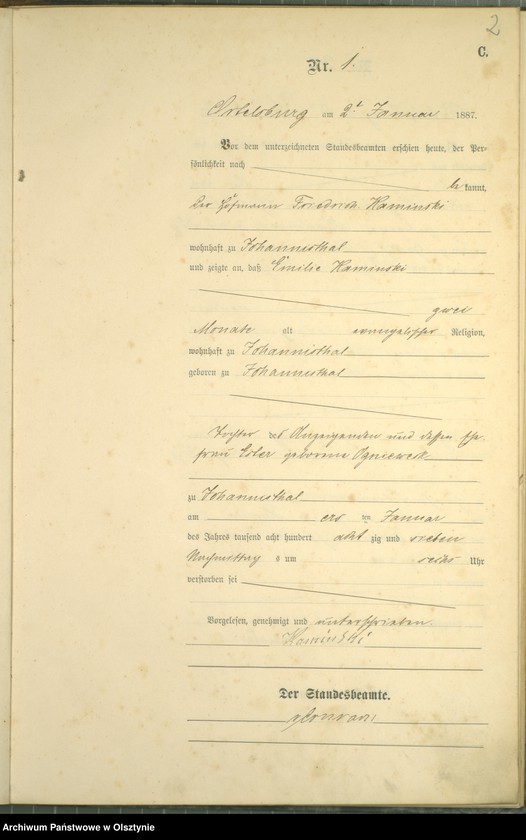 2
C.
Nr. 1.
Ortelsburg am 2t Januar 1887.
Vor dem unterzeichneten Standesbeamten erschien heute, der Per-
sönlichkeit nach
be kannt,
der Friedrich Kaminski
wohnhaft zu Johannisthal
und zeigte an, daß Emilie Kaminski
zwei
Monate alt evangelischer Religion,
wohnhaft zu Johannisthal
geboren zu Johannisthal
Tochter des Anzeigenden und dessen Ehe-
frau geborene
zu Johannisthal
am ers ten Januar
des Jahres tausend acht hundert acht zig und sieben
Nachmittag s um sechs Uhr
verstorben sei
Vorgelesen, genehmigt und unterschrieben.
Kaminski
Der Standesbeamte.
Archiwum Państwowe w Olsztynie